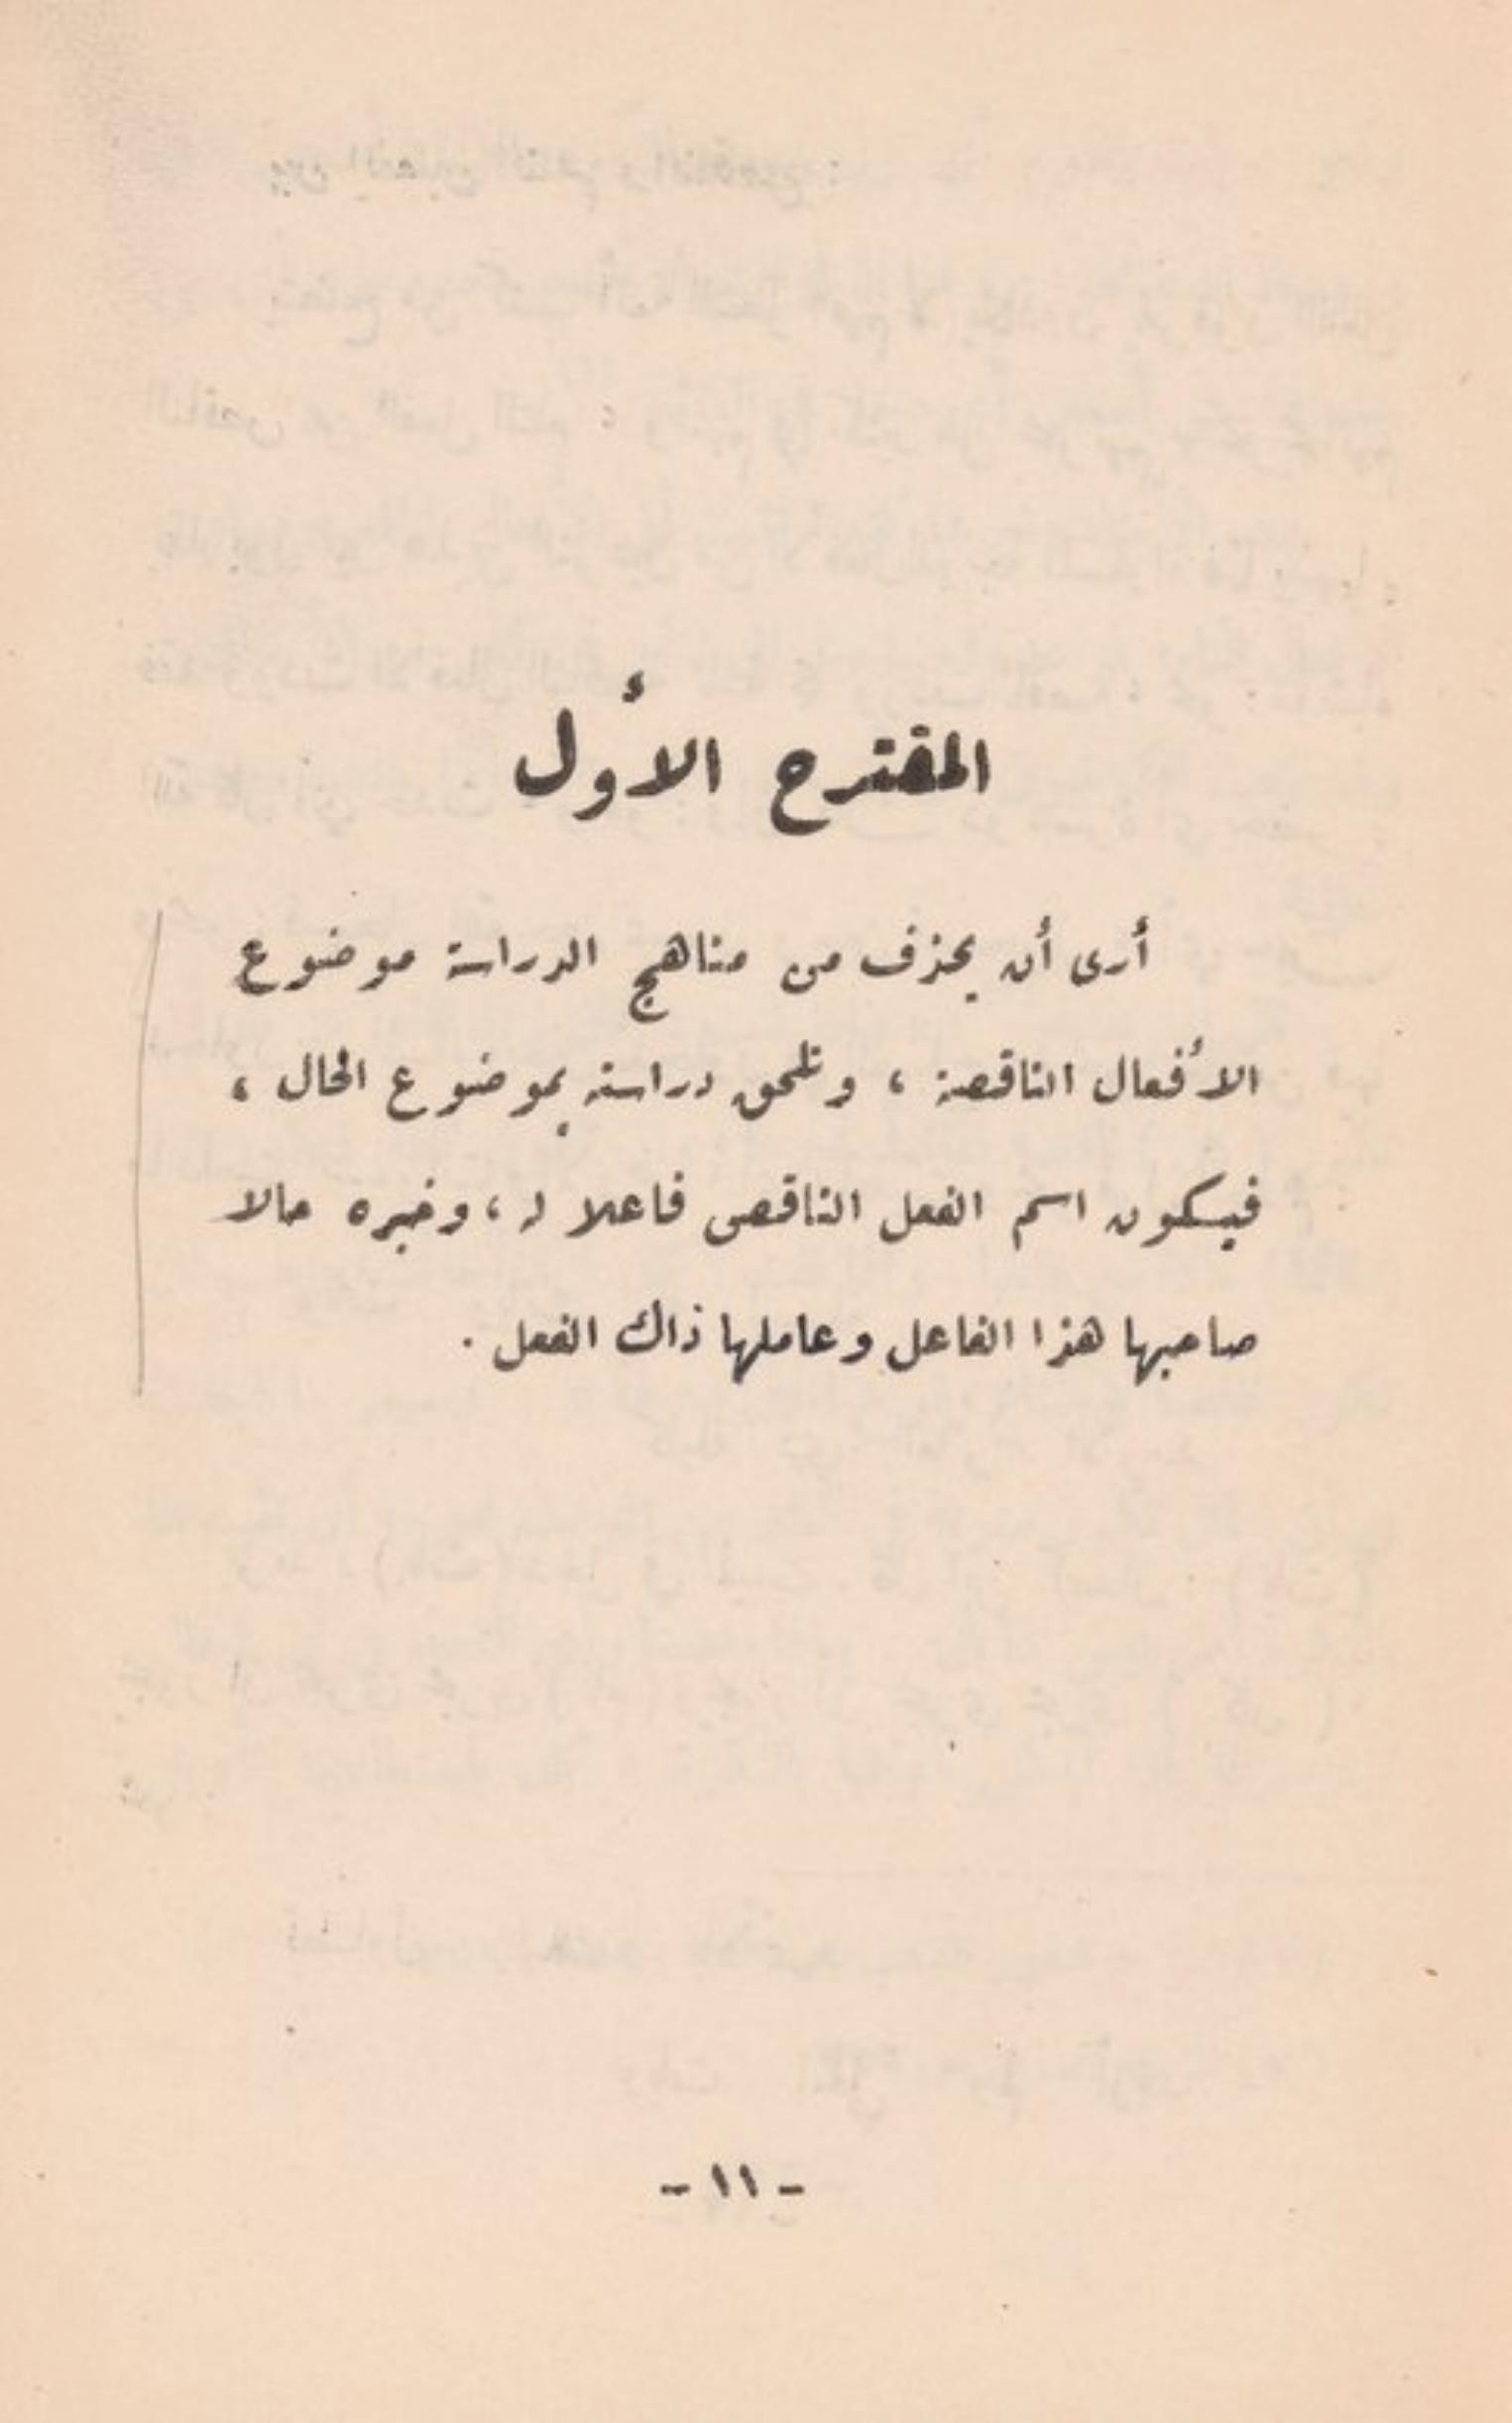 المقترح الأول
أرى أن يحذف من مناهج الدراسة موضوع
الأفعال الناقصة ، وتلحق دراسته بموضوع الحال ،
فيكون اسم الفعل الناقص فاعلا له ، وخبره حالا
صاحبها هذا الفاعل وعاملها ذاك الفعل .
- ١١ -